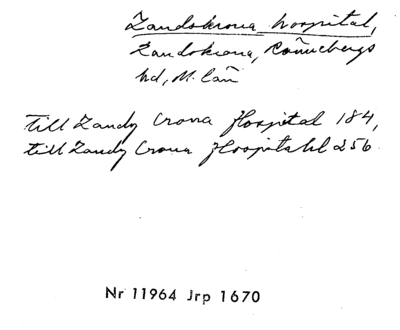 Landskrona hospital,
Landskrona, Rönnebergs
hd, M. län
till Landz Crona Hospital 184,
till Landz Crona Hospitahl 256
Nr 11964 Jrp 1670